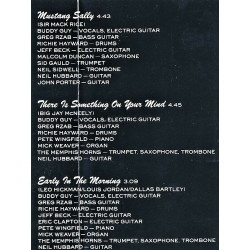 Mustang Sally 4.43
(SIR MACK RICE)
BUDDY GUY – VOCALS, ELECTRIC GUITAR
GREG RZAB – BASS GUITAR
RICHIE HAYWARD – DRUMS
JEFF BECK – ELECTRIC GUITAR
MALCOLM DUNCAN – SAXOPHONE
SID GAULD – TRUMPET
NEIL SIDWELL – TROMBONE
NEIL HUBBARD – GUITAR
JOHN PORTER – GUITAR
There Is Something On Your Mind 4.45
(BIG JAY MCNEELY)
BUDDY GUY – VOCALS, ELECTRIC GUITAR
GREG RZAB – BASS GUITAR
RICHIE HAYWARD – DRUMS
PETE WINGFIELD – PIANO
MICK WEAVER – ORGAN
THE MEMPHIS HORNS – TRUMPET, SAXOPHONE, TROMBONE
NEIL HUBBARD – GUITAR
Early In The Morning 3.09
(LEO HICKMAN/LOUIS JORDAN/DALLAS BARTLEY)
BUDDY GUY – VOCALS, ELECTRIC GUITAR
GREG RZAB – BASS GUITAR
RICHIE HAYWARD – DRUMS
JEFF BECK – ELECTRIC GUITAR
ERIC CLAPTON – ELECTRIC GUITAR
PETE WINGFIELD – PIANO
MICK WEAVER – ORGAN
THE MEMPHIS HORNS – TRUMPET, SAXOPHONE, TROMBONE
NEIL HUBBARD – GUITAR